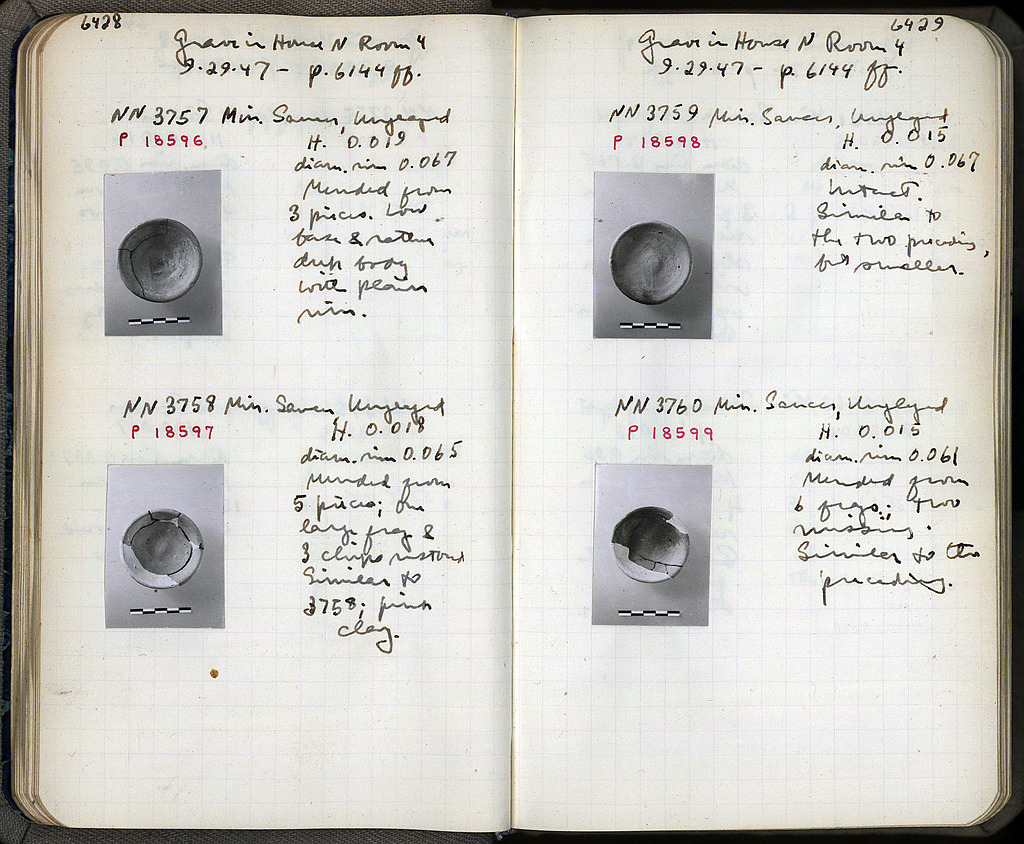 6428
Grave in House N Room 4
9.29.47 - p. 6144 ff.
NN 3757 Min. Saucer, Unglazed
P 18596
H. 0.019
diam. rim 0.067
Mended from
3 pieces. Low
base & rather
deep body
with plain
rim.
NN 3758 Min. Saucer, Unglazed
P 18597
H. 0.018
diam. rim 0.065
Mended from
5 pieces; one
large frag &
3 chips restored
Similar to
3758; pink
clay.
6429
Grave in House N Room 4
9.29.47 - p. 6144 ff.
NN 3759 Min. Saucer, Unglazed
P 18598
H. 0.015
diam. rim 0.067
Intact.
Similar to
the two preceding,
but smaller.
NN 3760 Min. Saucer, Unglazed
P 18599
H. 0.015
diam. rim 0.061
Mended from
6 frags; two
missing.
Similar to the
preceding.